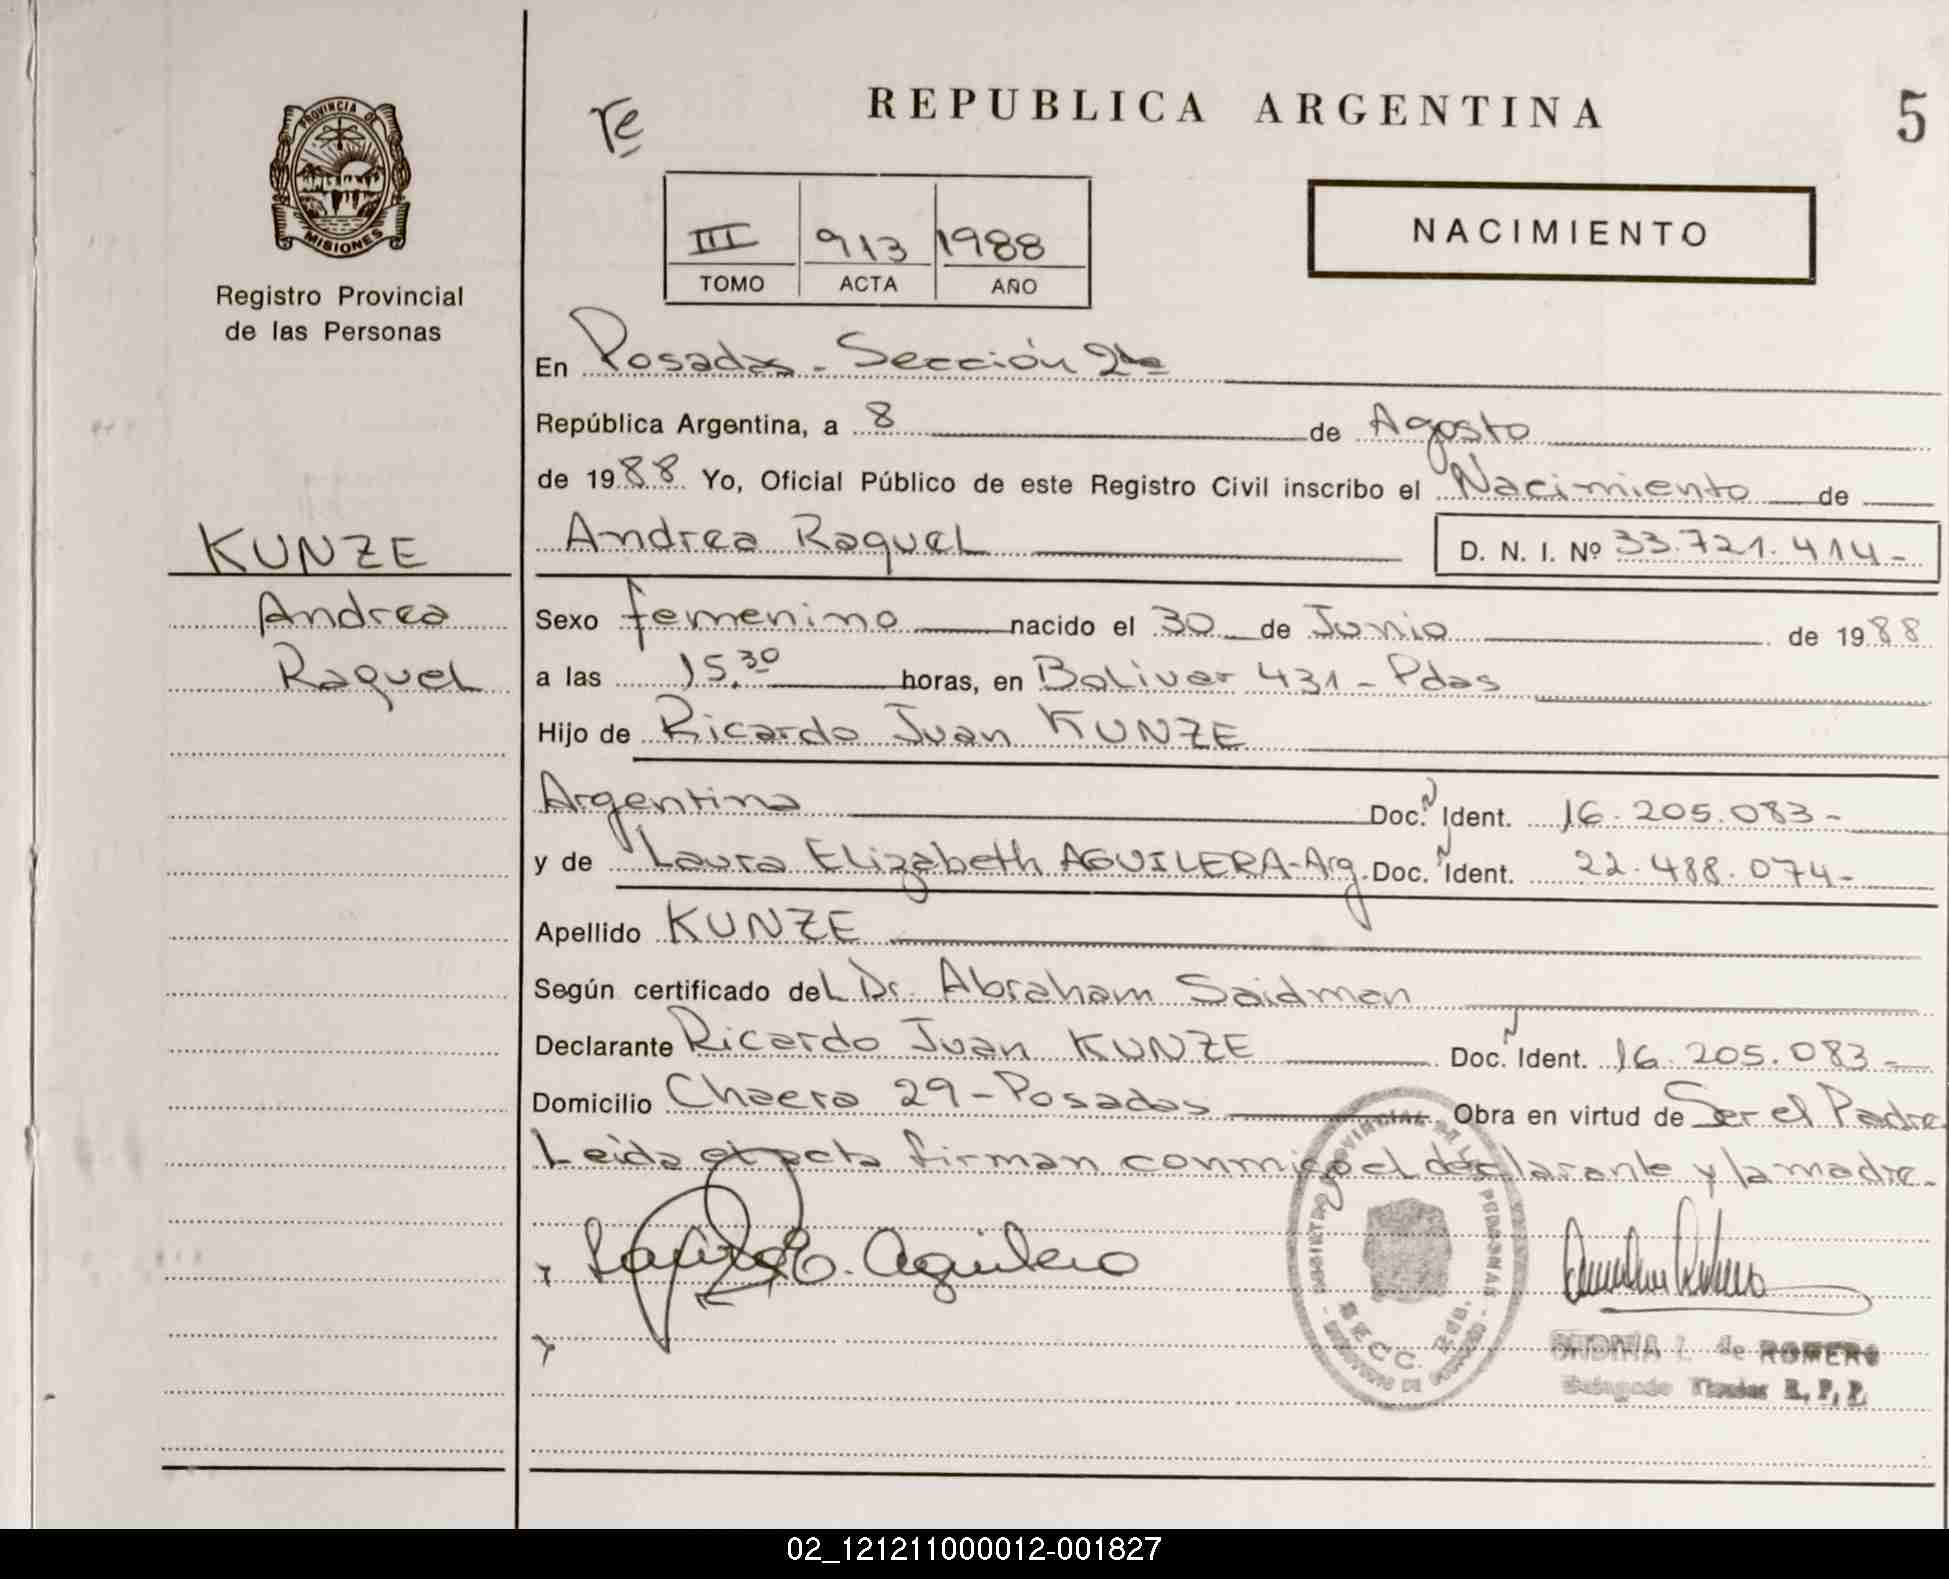 PROVINCIA DE
MISIONES
Registro Provincial
de las Personas
KUNZE
Andrea
Raquel
REPUBLICA ARGENTINA
5
III 913 1988
TOMO ACTA AÑO
NACIMIENTO
En Posadas - Sección 2da
República Argentina, a 8 de Agosto
de 1988 Yo, Oficial Público de este Registro Civil inscribo el Nacimiento de
Andrea Raquel D. N. I. Nº 33.721.414-
Sexo femenino nacido el 30 de Junio de 1988
a las 15,30 horas, en Bolivar 431 - Pdas
Hijo de Ricardo Juan KUNZE
Argentina Doc. Ident. 16.205.083-
y de Laura Elizabeth AGUILERA-Arg. Doc. Ident. 22.488.074-
Apellido KUNZE
Según certificado del Dr. Abraham Saidman
Declarante Ricardo Juan KUNZE Doc. Ident. 16.205.083-
Domicilio Chacra 29 - Posadas Obra en virtud de Ser el Padre
Leida el acta firman conmigo el declarante y la madre.
Laura E. Aguilera
SECC. 2da.
L. de ROMERO
Delegado Titular R. P. P.
02_121211000012-001827